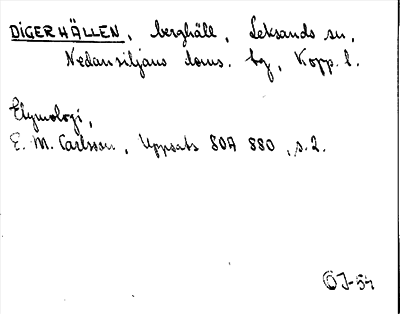 DIGERHÄLLEN, berghäll, Leksands sn,
Nedansiljans doms. bg, Kopp. l.
Etymologi,
E. M. Carlsson, Uppsats 80A 880, s. 2.
ÖJ-54